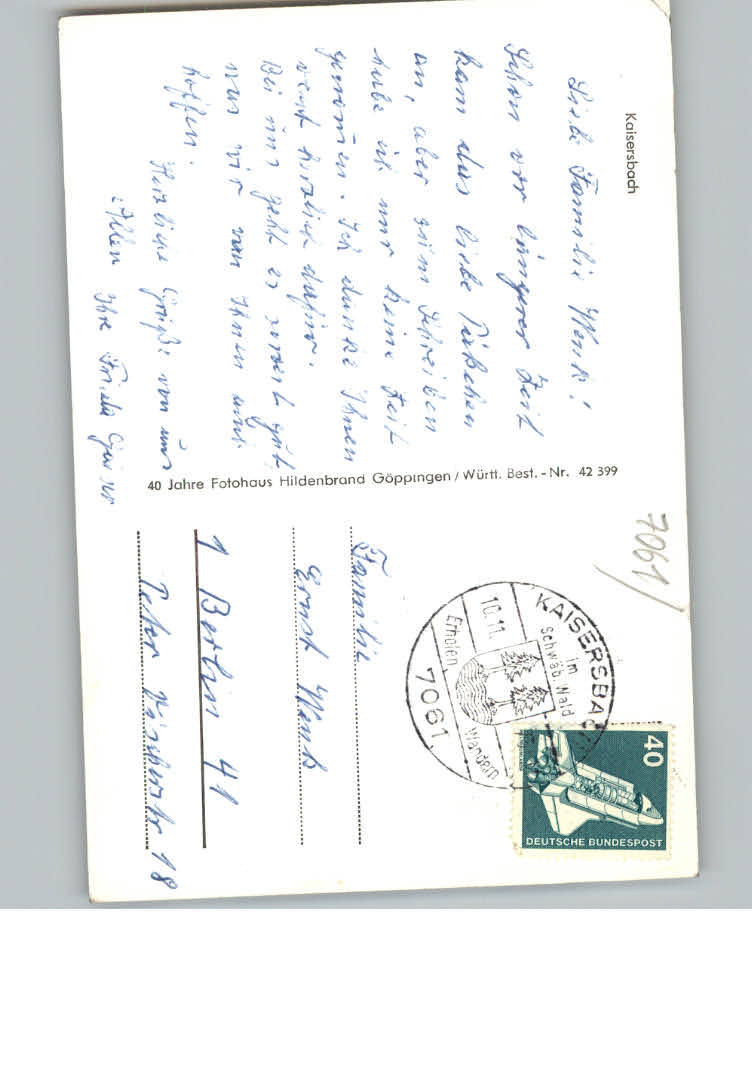 Kaisersbach
Liebe Familie Wenk!
Schon vor längerer Zeit
kam das liebe Päckchen
an, aber zum Schreiben
habe ich mir keine Zeit
genomen. Ich danke Ihnen
recht herzlich dafür.
Bei uns geht es soweit gut
was wir von Ihnen auch
hoffen.
Herzliche Grüße von uns
Allen Ihre Frieda
40 Jahre Fotohaus Hildenbrand Göppingen / Württ. Best. - Nr. 42 399
7061/
KAISERSBACH
im
Schwäb. Wald
10.11.
Erholen
Wandern
7061
40
DEUTSCHE BUNDESPOST
Familie
Ernst Wenk
1 Berlin 41
Peter 18